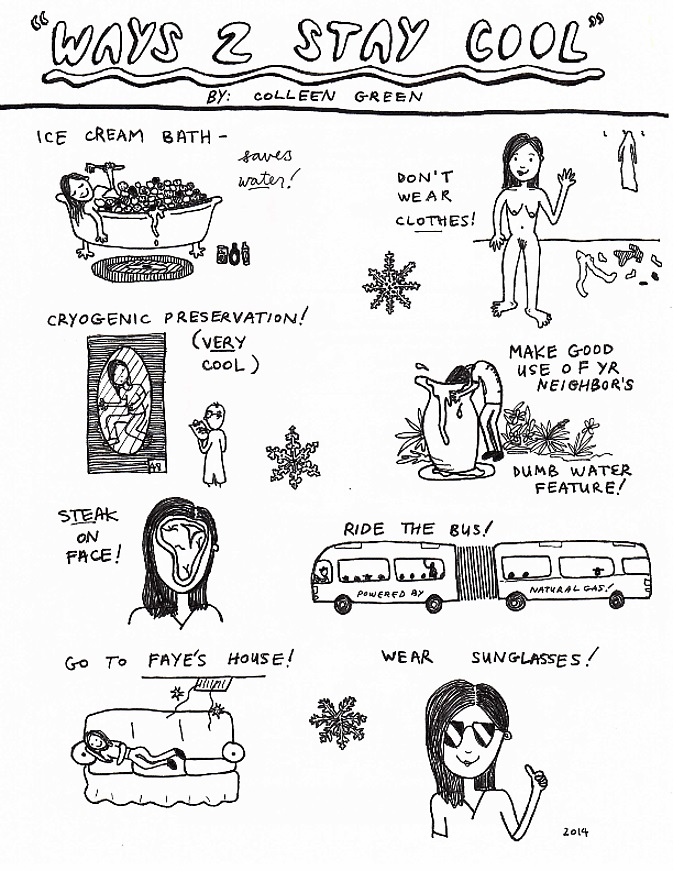 "WAYS 2 STAY COOL"
BY: COLLEEN GREEN
ICE CREAM BATH -
saves
water!
DON'T
WEAR
CLOTHES!
CRYOGENIC PRESERVATION!
(VERY
COOL)
MAKE GOOD
USE OF YR
NEIGHBOR'S
DUMB WATER
FEATURE!
STEAK
ON
FACE!
RIDE THE BUS!
POWERED BY
NATURAL GAS!
GO TO FAYE'S HOUSE!
WEAR SUNGLASSES!
2014